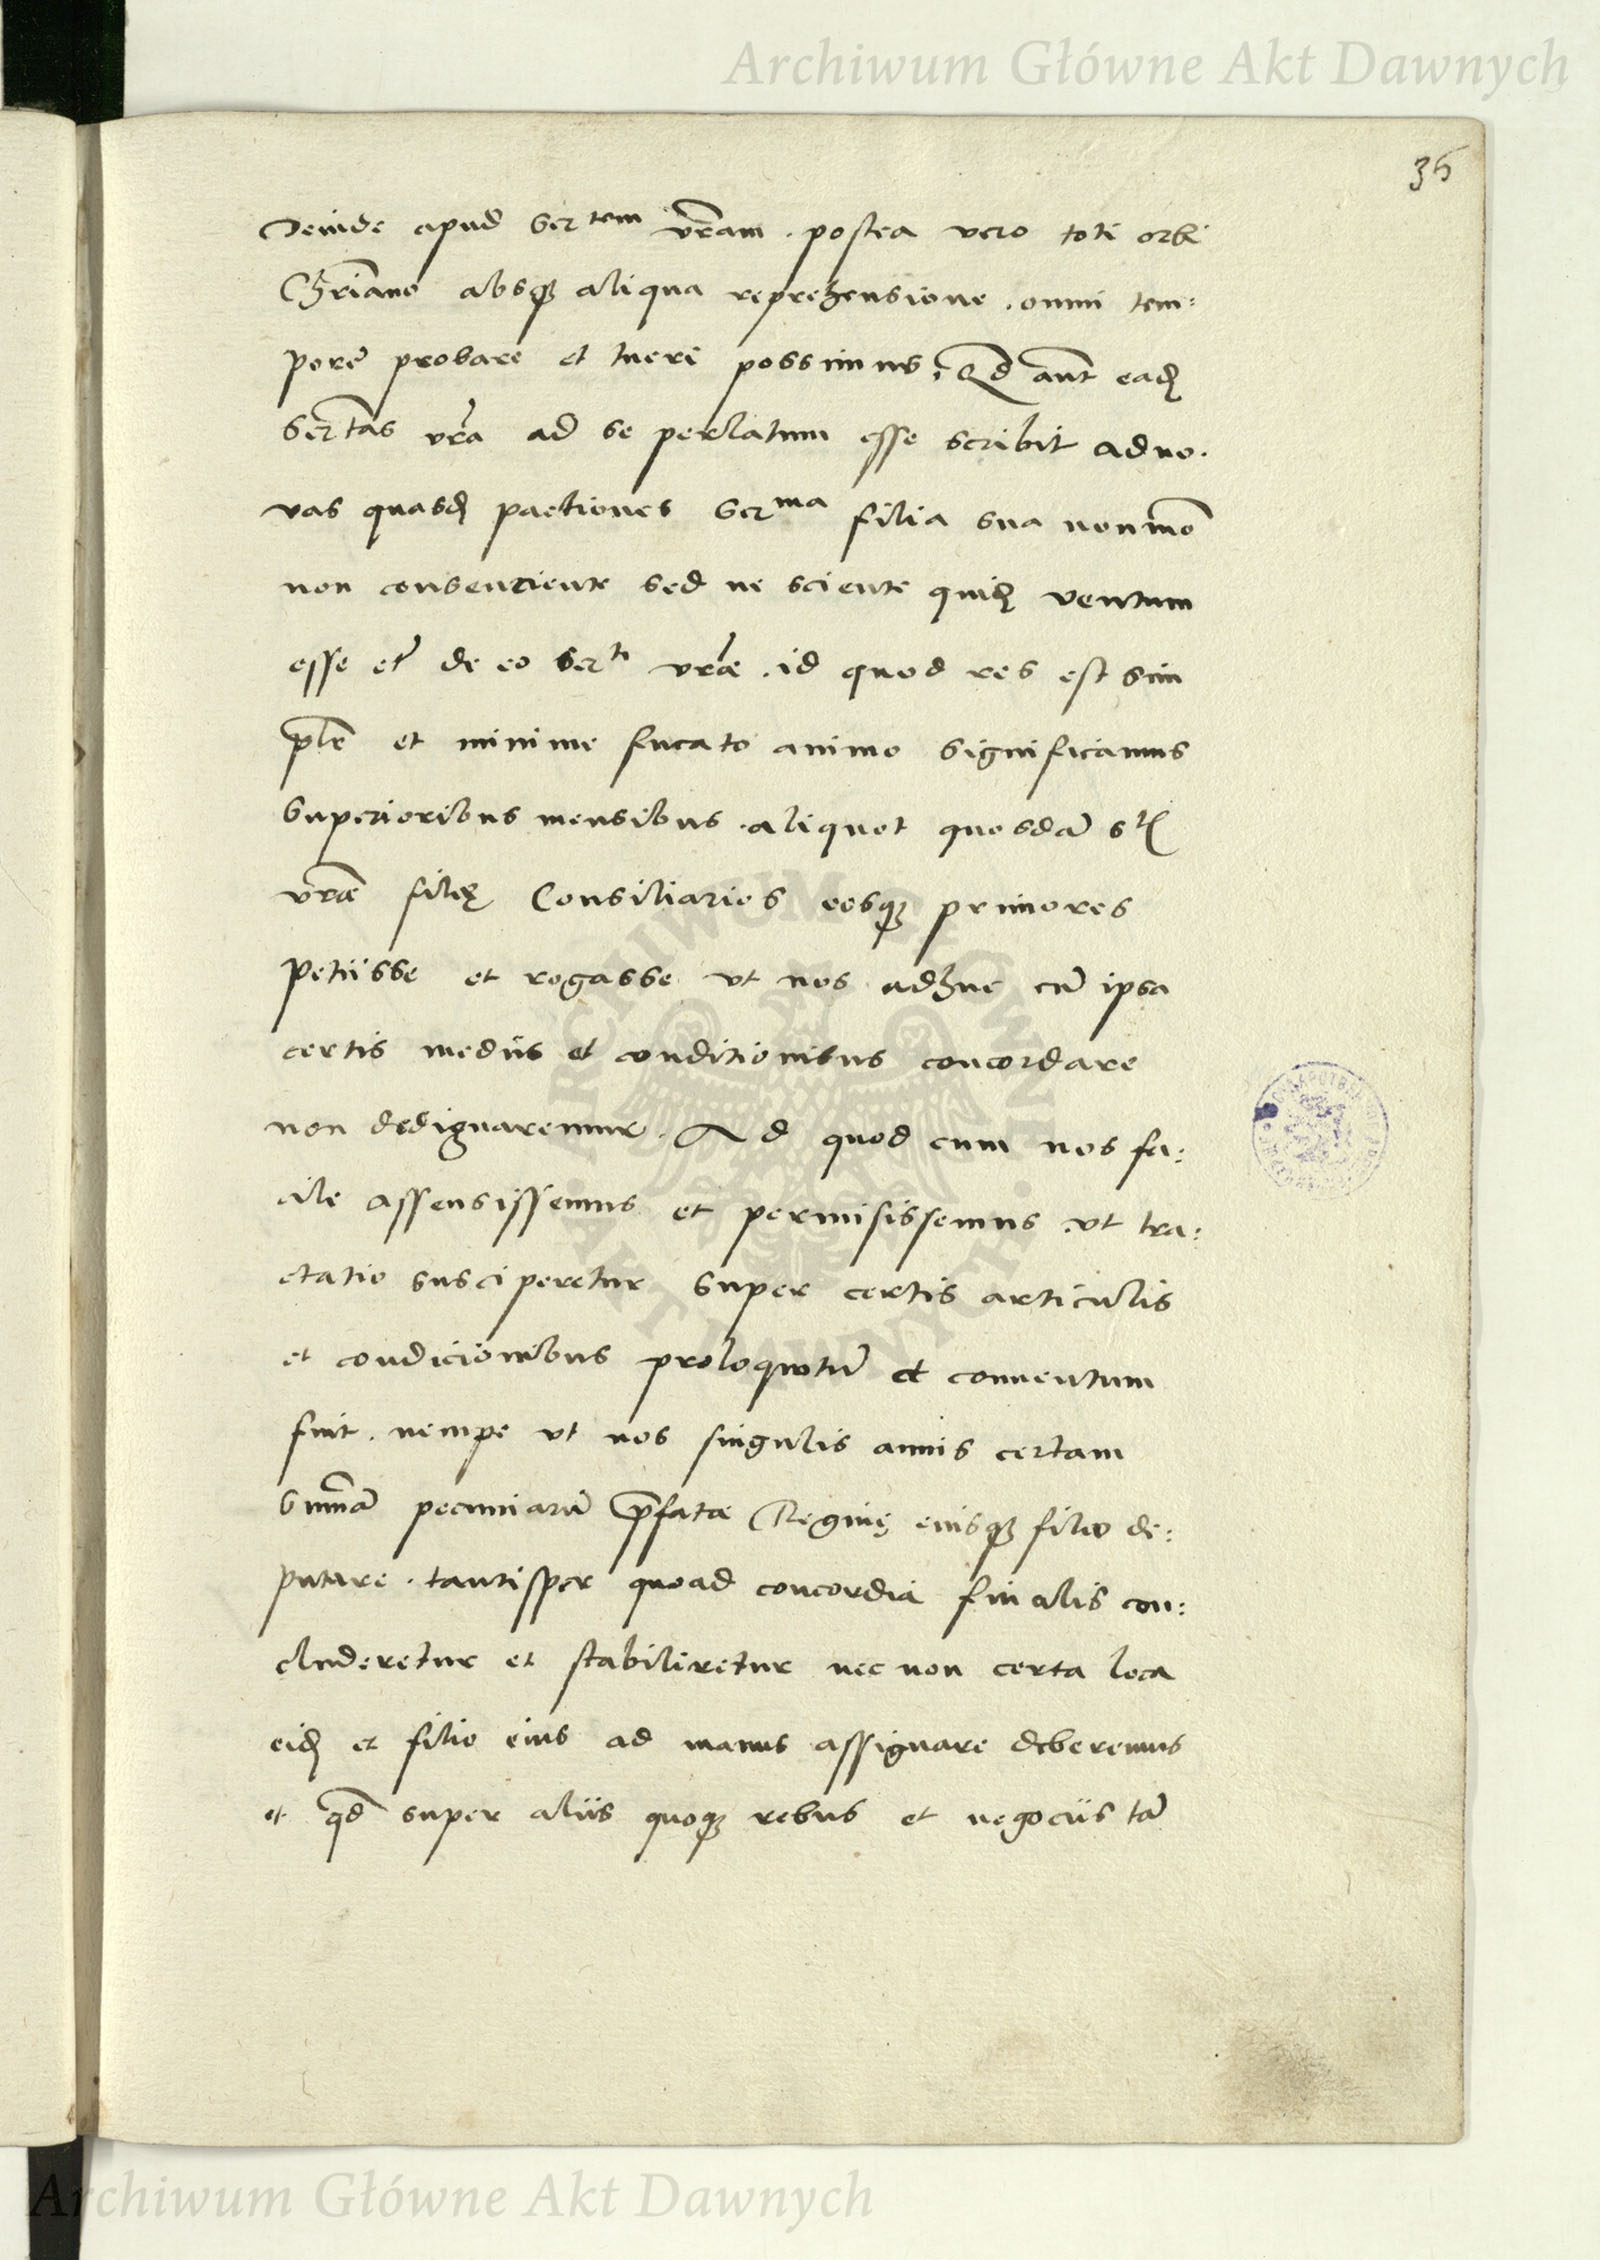 Archiwum Główne Akt Dawnych
35
Deinde apud Ser^tem vr̃am . postea vero toti orbi
Chr̃iano absq; aliqua reprehensione . omni tem:
pore probare et tueri possimus, Qd aut̃ ead̃
Ser̃tas vr̃a ad se perlatum esse scribit ad no.
vas quasd̃ pactiones Ser^ma filia sua non mõ
non consentiente sed ne sciente quid̃ ventum
esse et de eo Ser^ti vr̃ae . id quod res est sim
pl̃r et minime fucato animo significamus
Superioribus mensibus . aliquot quosdã S^tis
vr̃ae filię Consiliarios eosq; primores
petiisse et rogasse vt nos adhuc cũ ipsa
certis mediis et conditionibus concordare
non dedignaremur . Ad quod cum nos fa:
cile assensissemus et permisissemus vt tra:
ctatio susciperetur super certis articulis
et condicionibus proloquutũ et conuentum
fuit . nempe vt nos singulis annis certam
Sum̃ã pecuniarũ p̃fatae Reginę eiusq; filio de:
putare . tantisper quoad concordia finalis con:
cluderetur et stabiliretur nec non certa loca
eid̃ et filio eius ad manus assignare deberemus
et qd̃ super aliis quoq; rebus et negociis tã
ARCHIWUM GŁÓWNE AKT DAWNYCH
Archiwum Główne Akt Dawnych